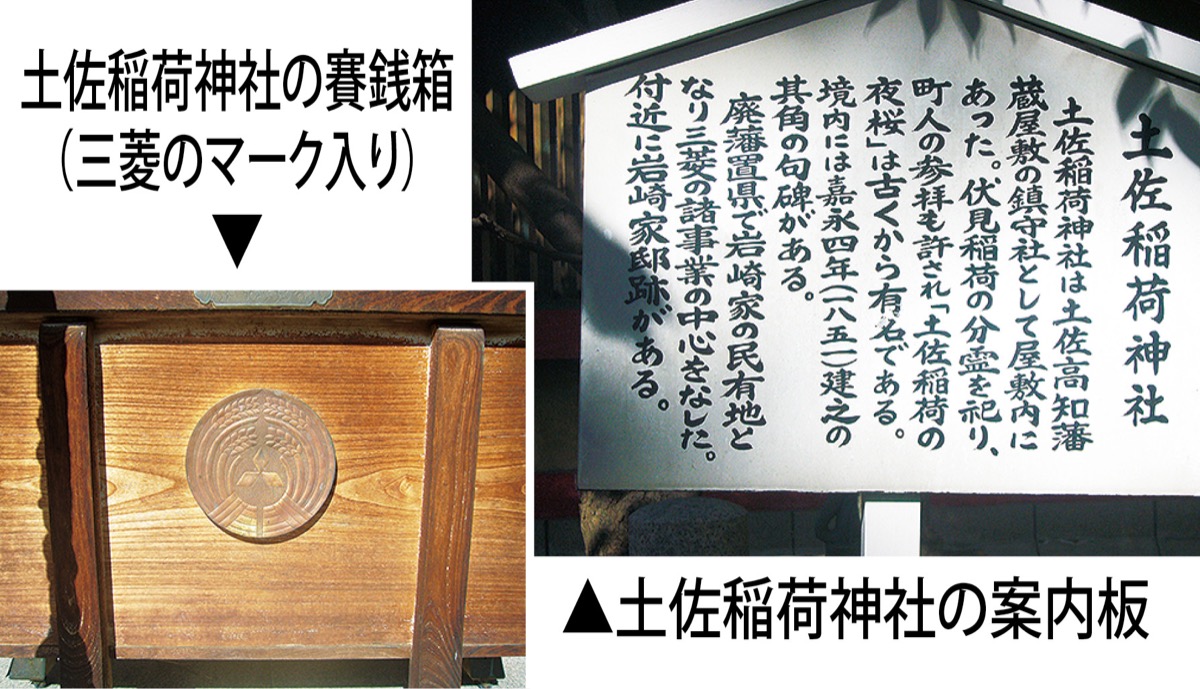 土佐稲荷神社の賽銭箱
(三菱のマーク入り)
▼
土佐稲荷神社
土佐稲荷神社は土佐高知藩
蔵屋敷の鎮守社として屋敷内に
あった。伏見稲荷の分霊を祀り、
町人の参拝も許され「土佐稲荷の
夜桜」は古くから有名である。
境内には嘉永四年(一八五一)建之の
其角の句碑がある。
廃藩置県で岩崎家の民有地と
なり三菱の諸事業の中心をなした。
付近に岩崎家邸跡がある。
▲土佐稲荷神社の案内板